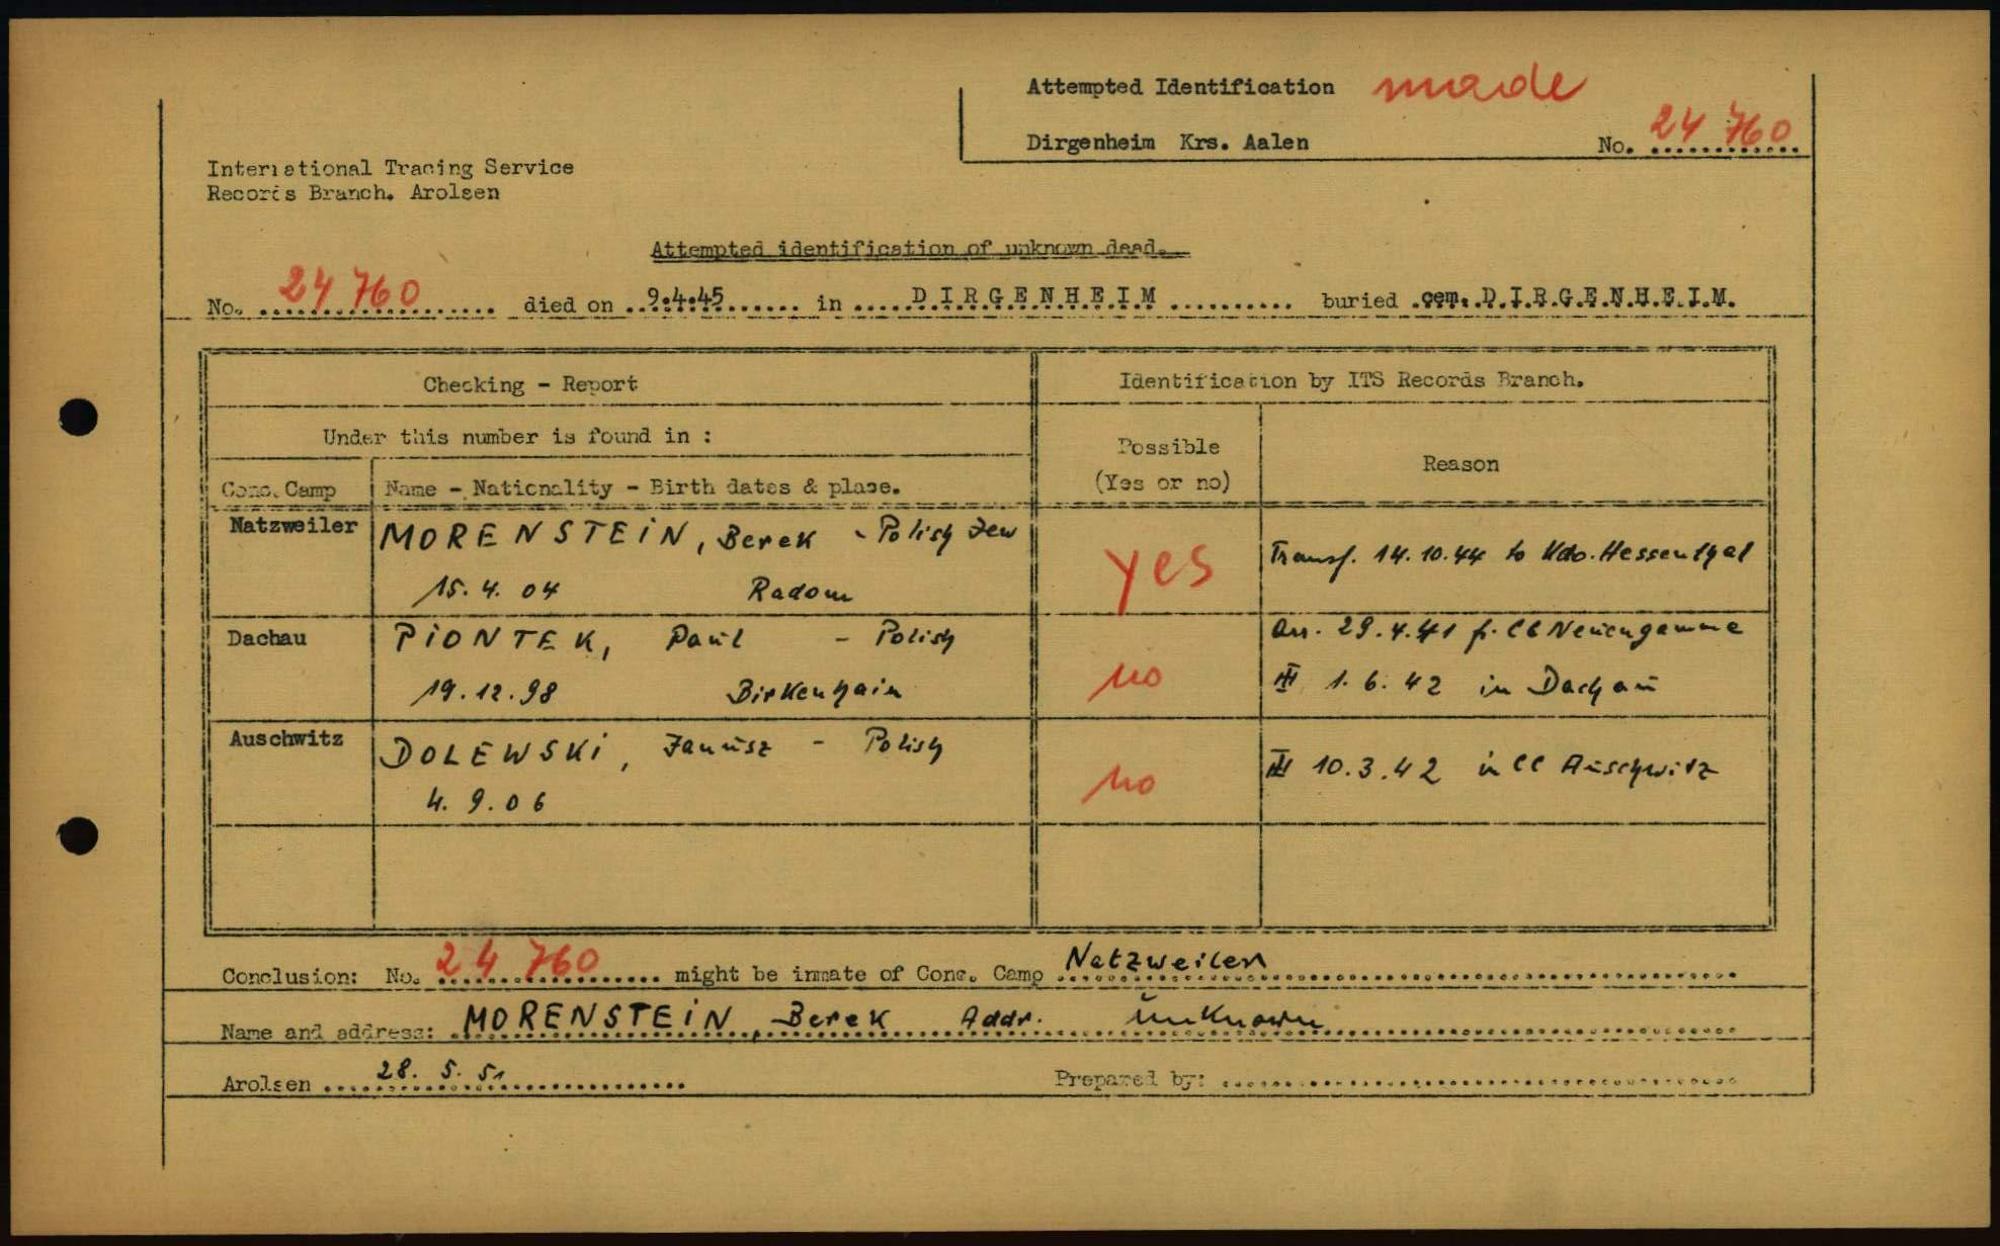 Attempted Identification made
Dirgenheim Krs. Aalen No. 24 760
International Tracing Service
Records Branch. Arolsen
Attempted identification of unknown dead.
No. 24 760 died on 9.4.45 in DIRGENHEIM buried cem. DIRGENHEIM.
Checking - Report
Identification by ITS Records Branch.
Under this number is found in :
Possible
(Yes or no)
Reason
Conc. Camp
Name - Nationality - Birth dates & place.
Natzweiler
MORENSTEIN, Berek - Polish Jew
15. 4. 04 Radom
yes
Transf. 14.10.44 to Kdo. Hessenthal
Dachau
PIONTEK, Paul - Polish
19.12.98 Birkenhain
no
Arr. 29.4.41 fr. CC Neuengamme
1. 6. 42 in Dachau
Auschwitz
DOLEWSKI, Janusz - Polish
4. 9. 06
no
10.3.42 in CC Auschwitz
Conclusion: No. 24 760 might be inmate of Conc. Camp Natzweiler
Name and address: MORENSTEIN, Berek Addr. unknown
Arolsen 28. 5. 51 Prepared by: